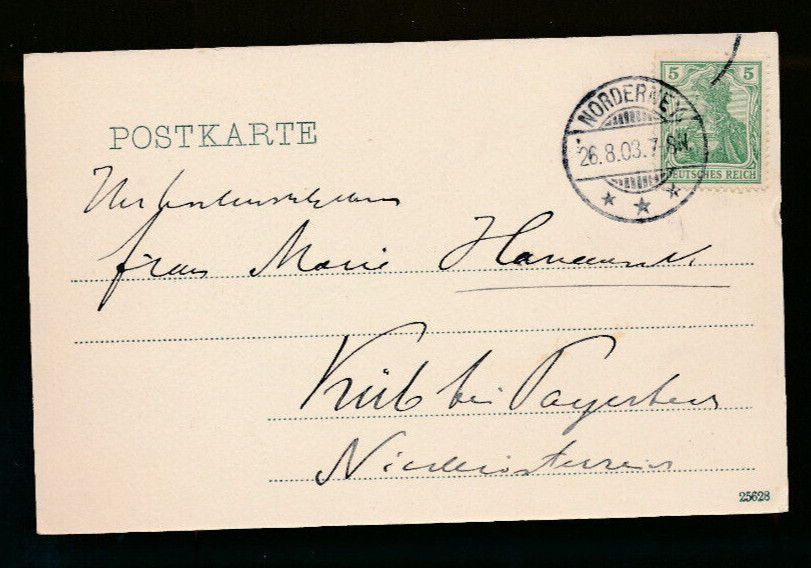 POSTKARTE
5 5
DEUTSCHES REICH
NORDERNEY
26.8.03. 7-8N.
Frau Marie
Küb bei Payerbach
Niederösterreich
25628